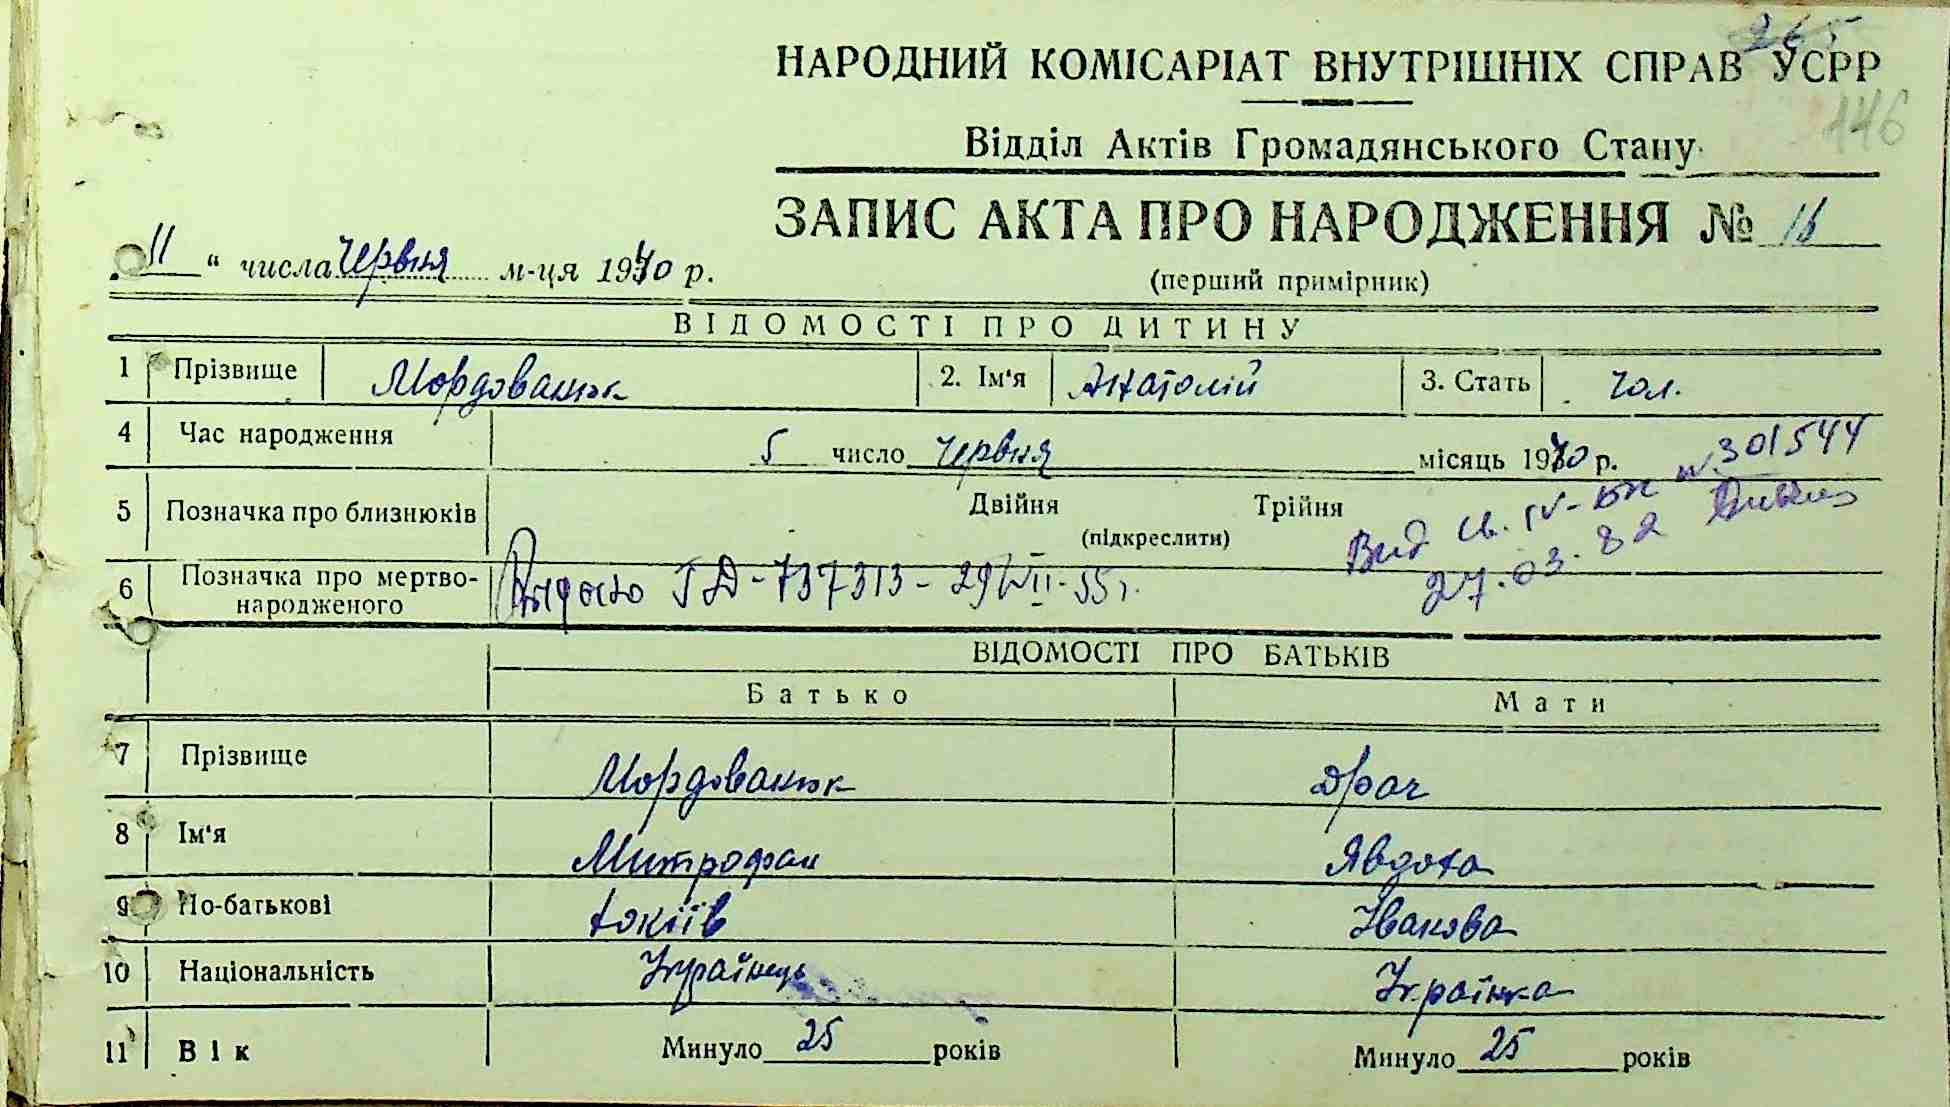 265
НАРОДНИЙ КОМІСАРІАТ ВНУТРІШНІХ СПРАВ УСРР
146
Відділ Актів Громадянського Стану
ЗАПИС АКТА ПРО НАРОДЖЕННЯ № 16
"11" числа червня м-ця 1940 р.
(перший примірник)
ВІДОМОСТІ ПРО ДИТИНУ
1 Прізвище Мордованюк 2. Ім'я Анатолій 3. Стать чол.
4 Час народження 5 число червня місяць 1940 р.
5 Позначка про близнюків Двійня Трійня
(підкреслити)
Вид св. IV-БК № 301544
27.03.82
6 Позначка про мертво-
народженого
Выдано ГД-737313-29/VII-55г.
ВІДОМОСТІ ПРО БАТЬКІВ
Батько Мати
7 Прізвище Мордованюк Драч
8 Ім'я Митрофан Явдоха
9 По-батькові Іванова
10 Національність Українець Українка
11 Вік Минуло 25 років Минуло 25 років